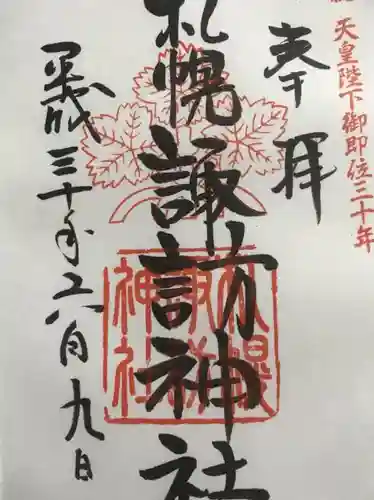 天皇陛下御即位三十年
奉拝
札幌諏訪神社
札幌諏訪神社
平成三十年六月九日